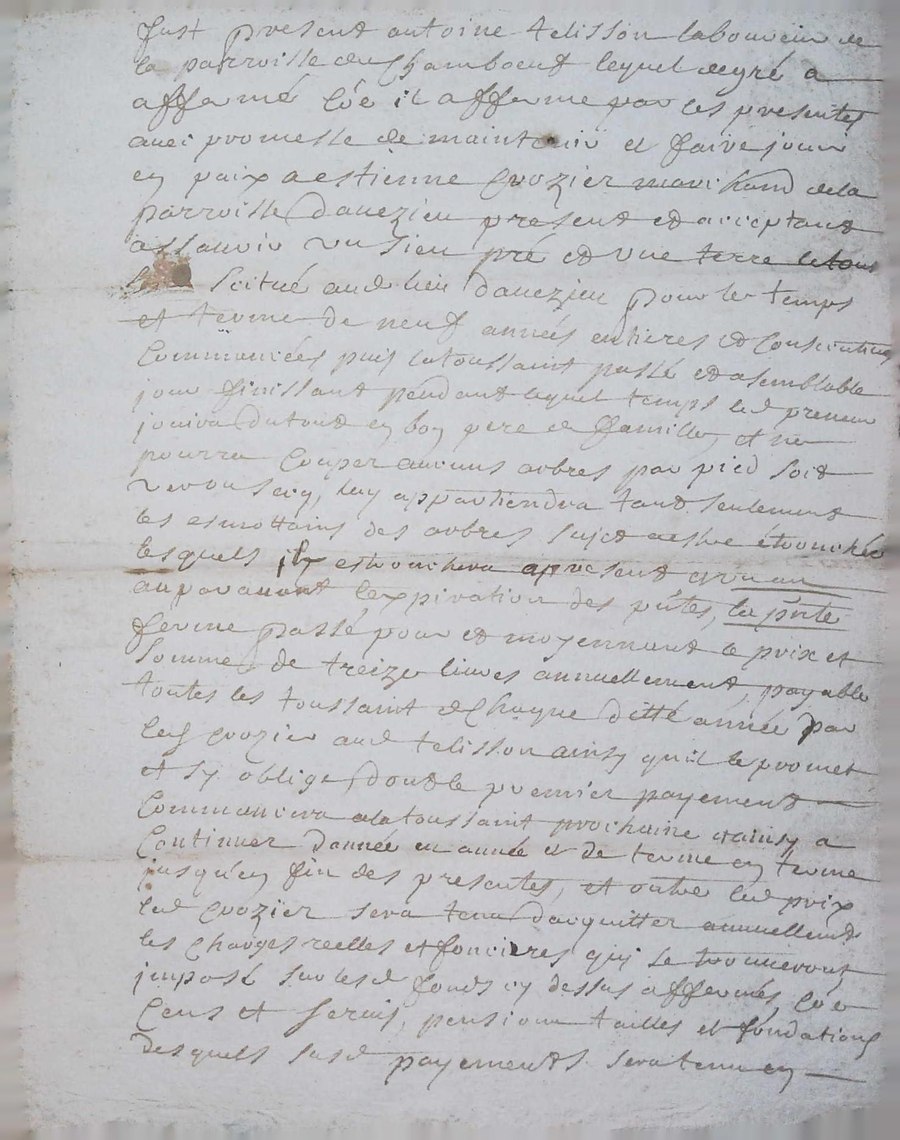 fust present antoine telisson laboureur de
la parroisse de Chambœuf lequel de gré a
affermé Côe il afferme par ces presentes
avec promesse de maintenir et faire jouir
en paix a estienne Crozier marchand de la
parroisse davezieu present et acceptant
assavoir un sien pré et une terre le tout
scitué aud lieu davezieu pour le temps
et terme de neuf années entieres et consecutives
Commancées puis la toussaint passé et a semblable
jour finissant pendant lequel temps led preneur
jouira du tout en bon pere de famille, et ne
pourra Couper aucuns arbres par pied soit
verd ou secq, luy appartiendra tant seulement
les esmottains des arbres sujet a estre étronchés
lesquels il estronchera a present qvn an
auparavant lexpiration des pñtes, la pñte
ferme passé pour et moyennant le prix et
somme de treize livres annuellement, payable
toutes les toussaint de Chaque ditte année par
led Crozier aud telisson ainsy quil le promet
et sy oblige, dont le premier payement
Commancera a la toussaint prochaine et ainsy a
Continuer dannée en année et de terme en terme
jusqu'en fin des presentes, et outre led prix
led Crozier sera tenu dacquitter annuellemt
les Charges reelles et foncieres qui se trouveront
imposé sur lesd fonds cy dessus affermés, Côe
Cens et servis, pension tailles et fondations
desquels susd payements sera tenu en